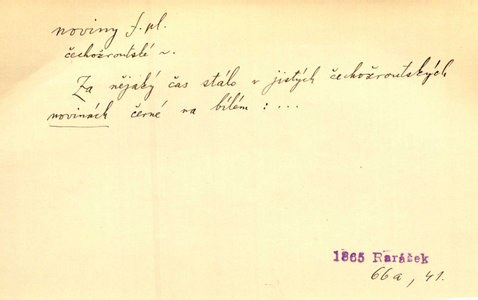 noviny f. pl.
čechožroutské ~.
Za nějaký čas stálo v jistých čechožroutských
novinách černé na bílém : ...
1865 Rarášek
66a, 41.